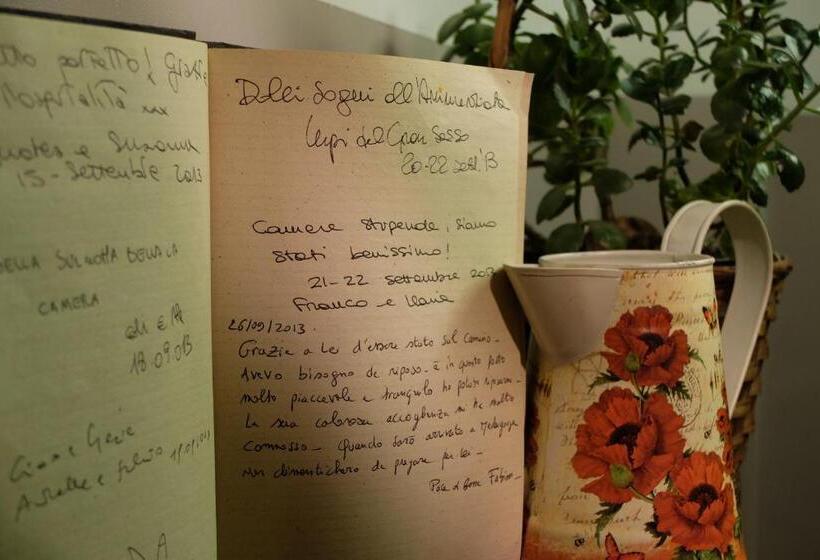 perfetto! Grazie
ospitalità xxx
e Suzanna
15-Settembre 2013
BELLA SULMONA BELLA LA
CAMERA
18.09.013
Ciao e Grazie
Dolci Sogni all'Annunziata
Lupi del Gran Sasso
20-22 sett. '13
Camere stupende, siamo
stati benissimo!
21-22 settembre
Franco e Ilaria
26/09/2013.
Grazie a lei d'essere stato sul camino.
Avevo bisogno de riposo. è in questo posto
molto piaccevole e tranquilo ho potuto riposarmi.
La sua calorosa accoglienza mi ha molto
commosso. Quando sarò arrivato a Medugorje
non dimentichero de pregare per lei.
Pace e bene Fabien.
from